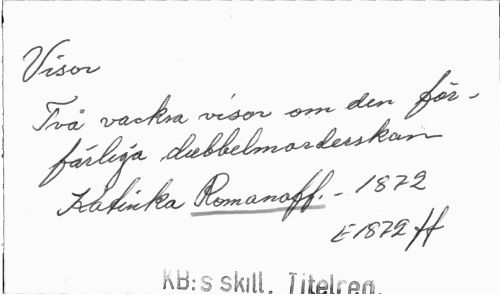 Visor
Två vackra visor om den för-
färliga dubbelmorderskan
Katinka Romanoff. - 1872
E 1872 ff
KB:s skill. Titelreg.